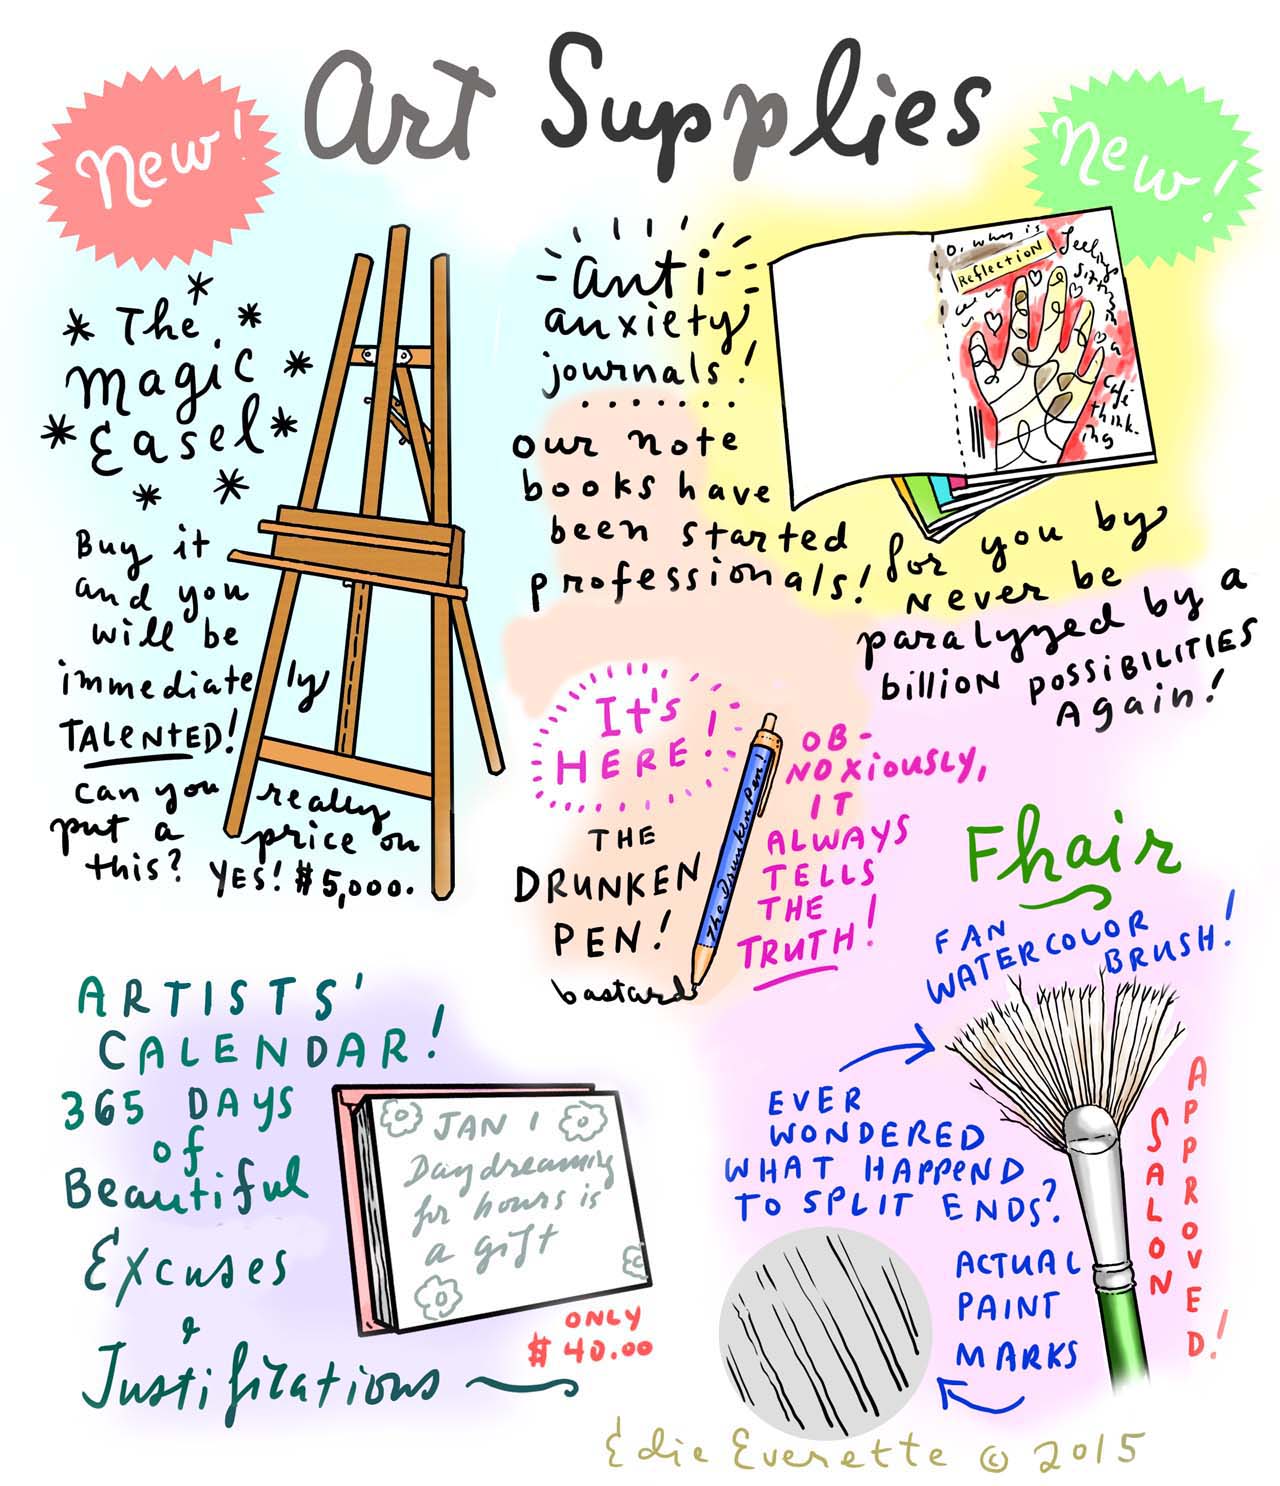 Art Supplies
New!
New!
The
Magic
Easel
Buy it
and you
will be
immediately
TALENTED!
can you really
put a price on
this? YES! $5,000.
anti-
anxiety
journals!
our note
books have
been started
professionals!
for you by
Never be
paralyzed by a
billion possibilities
Again!
O, why is
Reflection
feelings
sitting
in a
café
think-
ing
It's
HERE!
THE
DRUNKEN
PEN!
bastard
The Drunken Pen!
OB-
NOXIOUSLY,
IT
ALWAYS
TELLS
THE
TRUTH!
Fhair
FAN
WATERCOLOR
BRUSH!
EVER
WONDERED
WHAT HAPPEND
TO SPLIT ENDS?
ACTUAL
PAINT
MARKS
SALON
APPROVED!
ARTISTS'
CALENDAR!
365 DAYS
of
Beautiful
Excuses
&
Justifications
JAN 1
Daydreaming
for hours is
a gift
ONLY
$40.00
Edie Everette © 2015